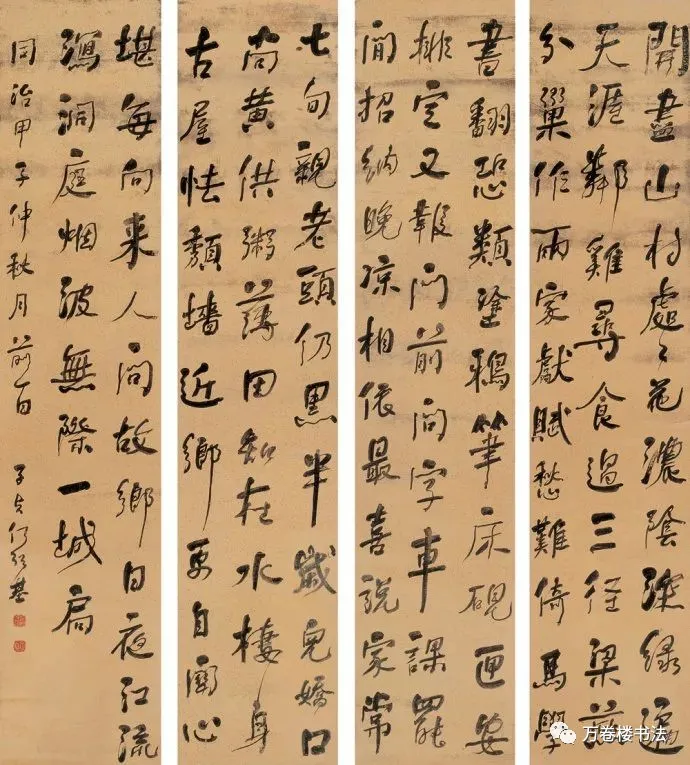 開盡山村處々花濃陰深綠遍
天涯鄰雞尋食過三徑梁燕
分巢作兩家獻賦愁難倚馬學
書翻恐類塗鴉筆床硯匣安
排定又報門前問字車課罷
閒招納晚涼相依最喜說家常
七旬親老頭仍黑半歲兒嬌口
尚黄供粥薄田知在水棲身
古屋怯頹墻近鄉更自關心
堪每向来人問故鄉日夜江流
瀉洞庭烟波無際一城扃
同治甲子仲秋月前一日 子貞何紹基
万卷楼书法